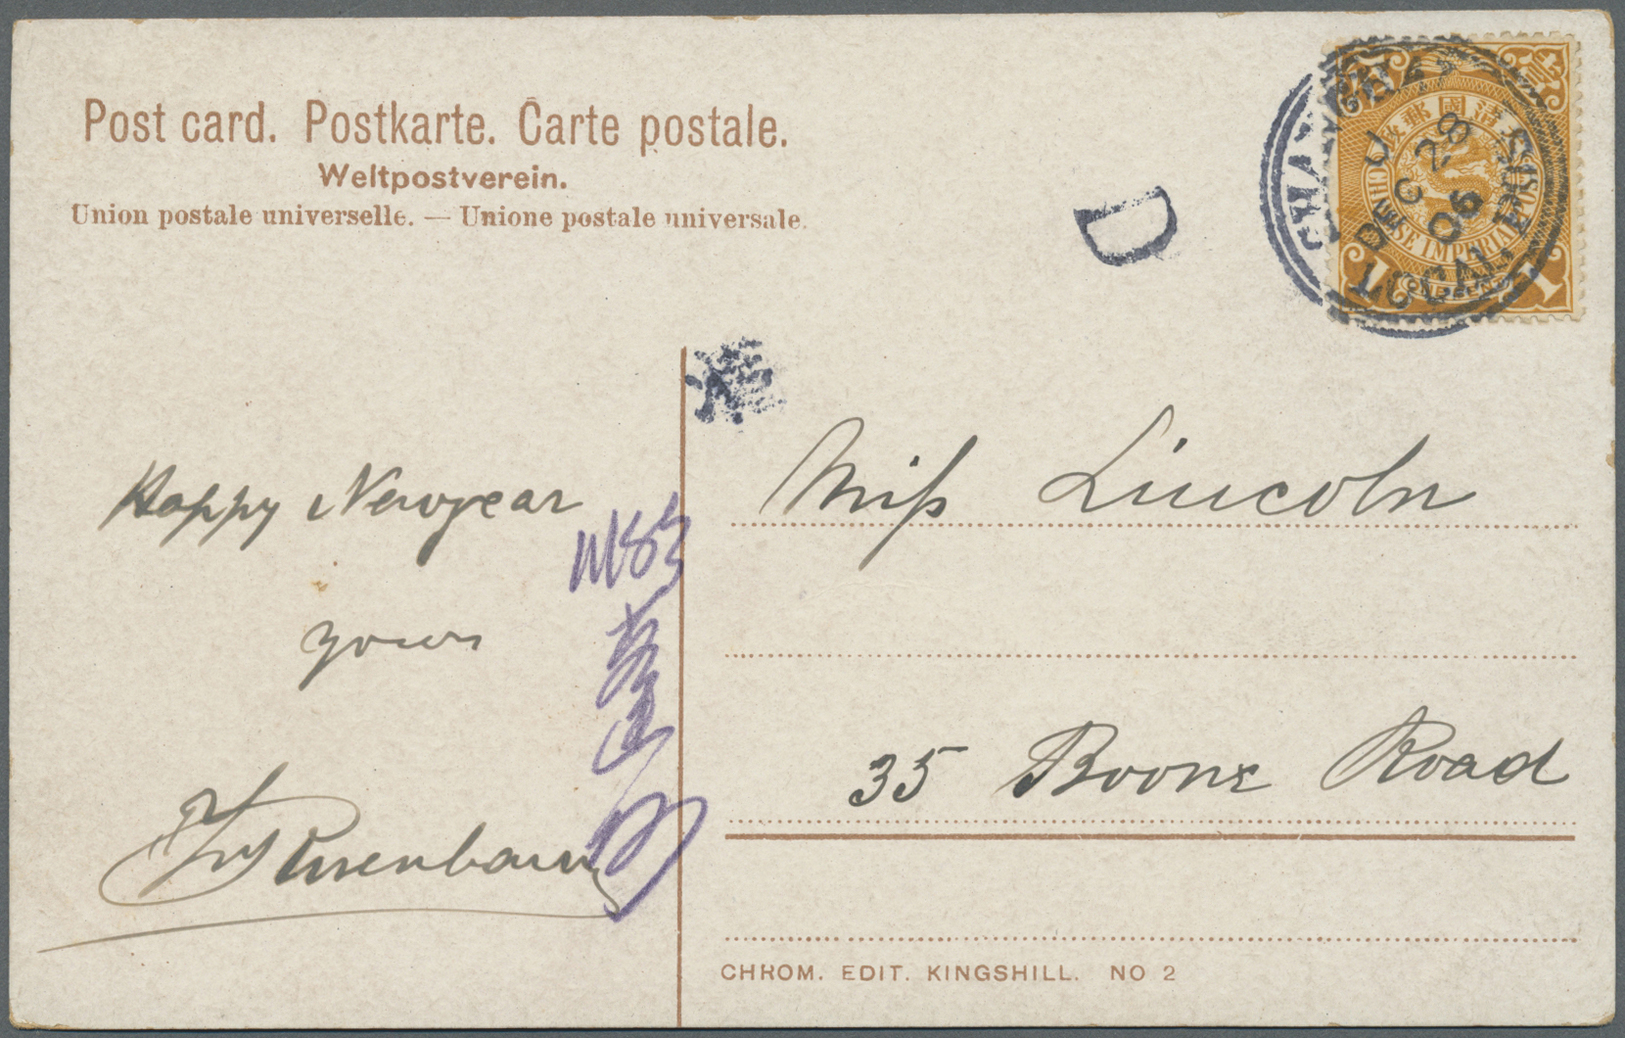 Post card. Postkarte. Carte postale.
Weltpostverein.
Union postale universelle. — Unione postale universale.
D
SHANGHAI
LOCAL POST
U
DEC 28
06
大清國郵政
CHINESE IMPERIAL POST
ONE CENT
1
1
Happy Newyear
yours
Rosenbaum
Miss Lincoln
35 Boone Road
CHROM. EDIT. KINGSHILL. NO 2